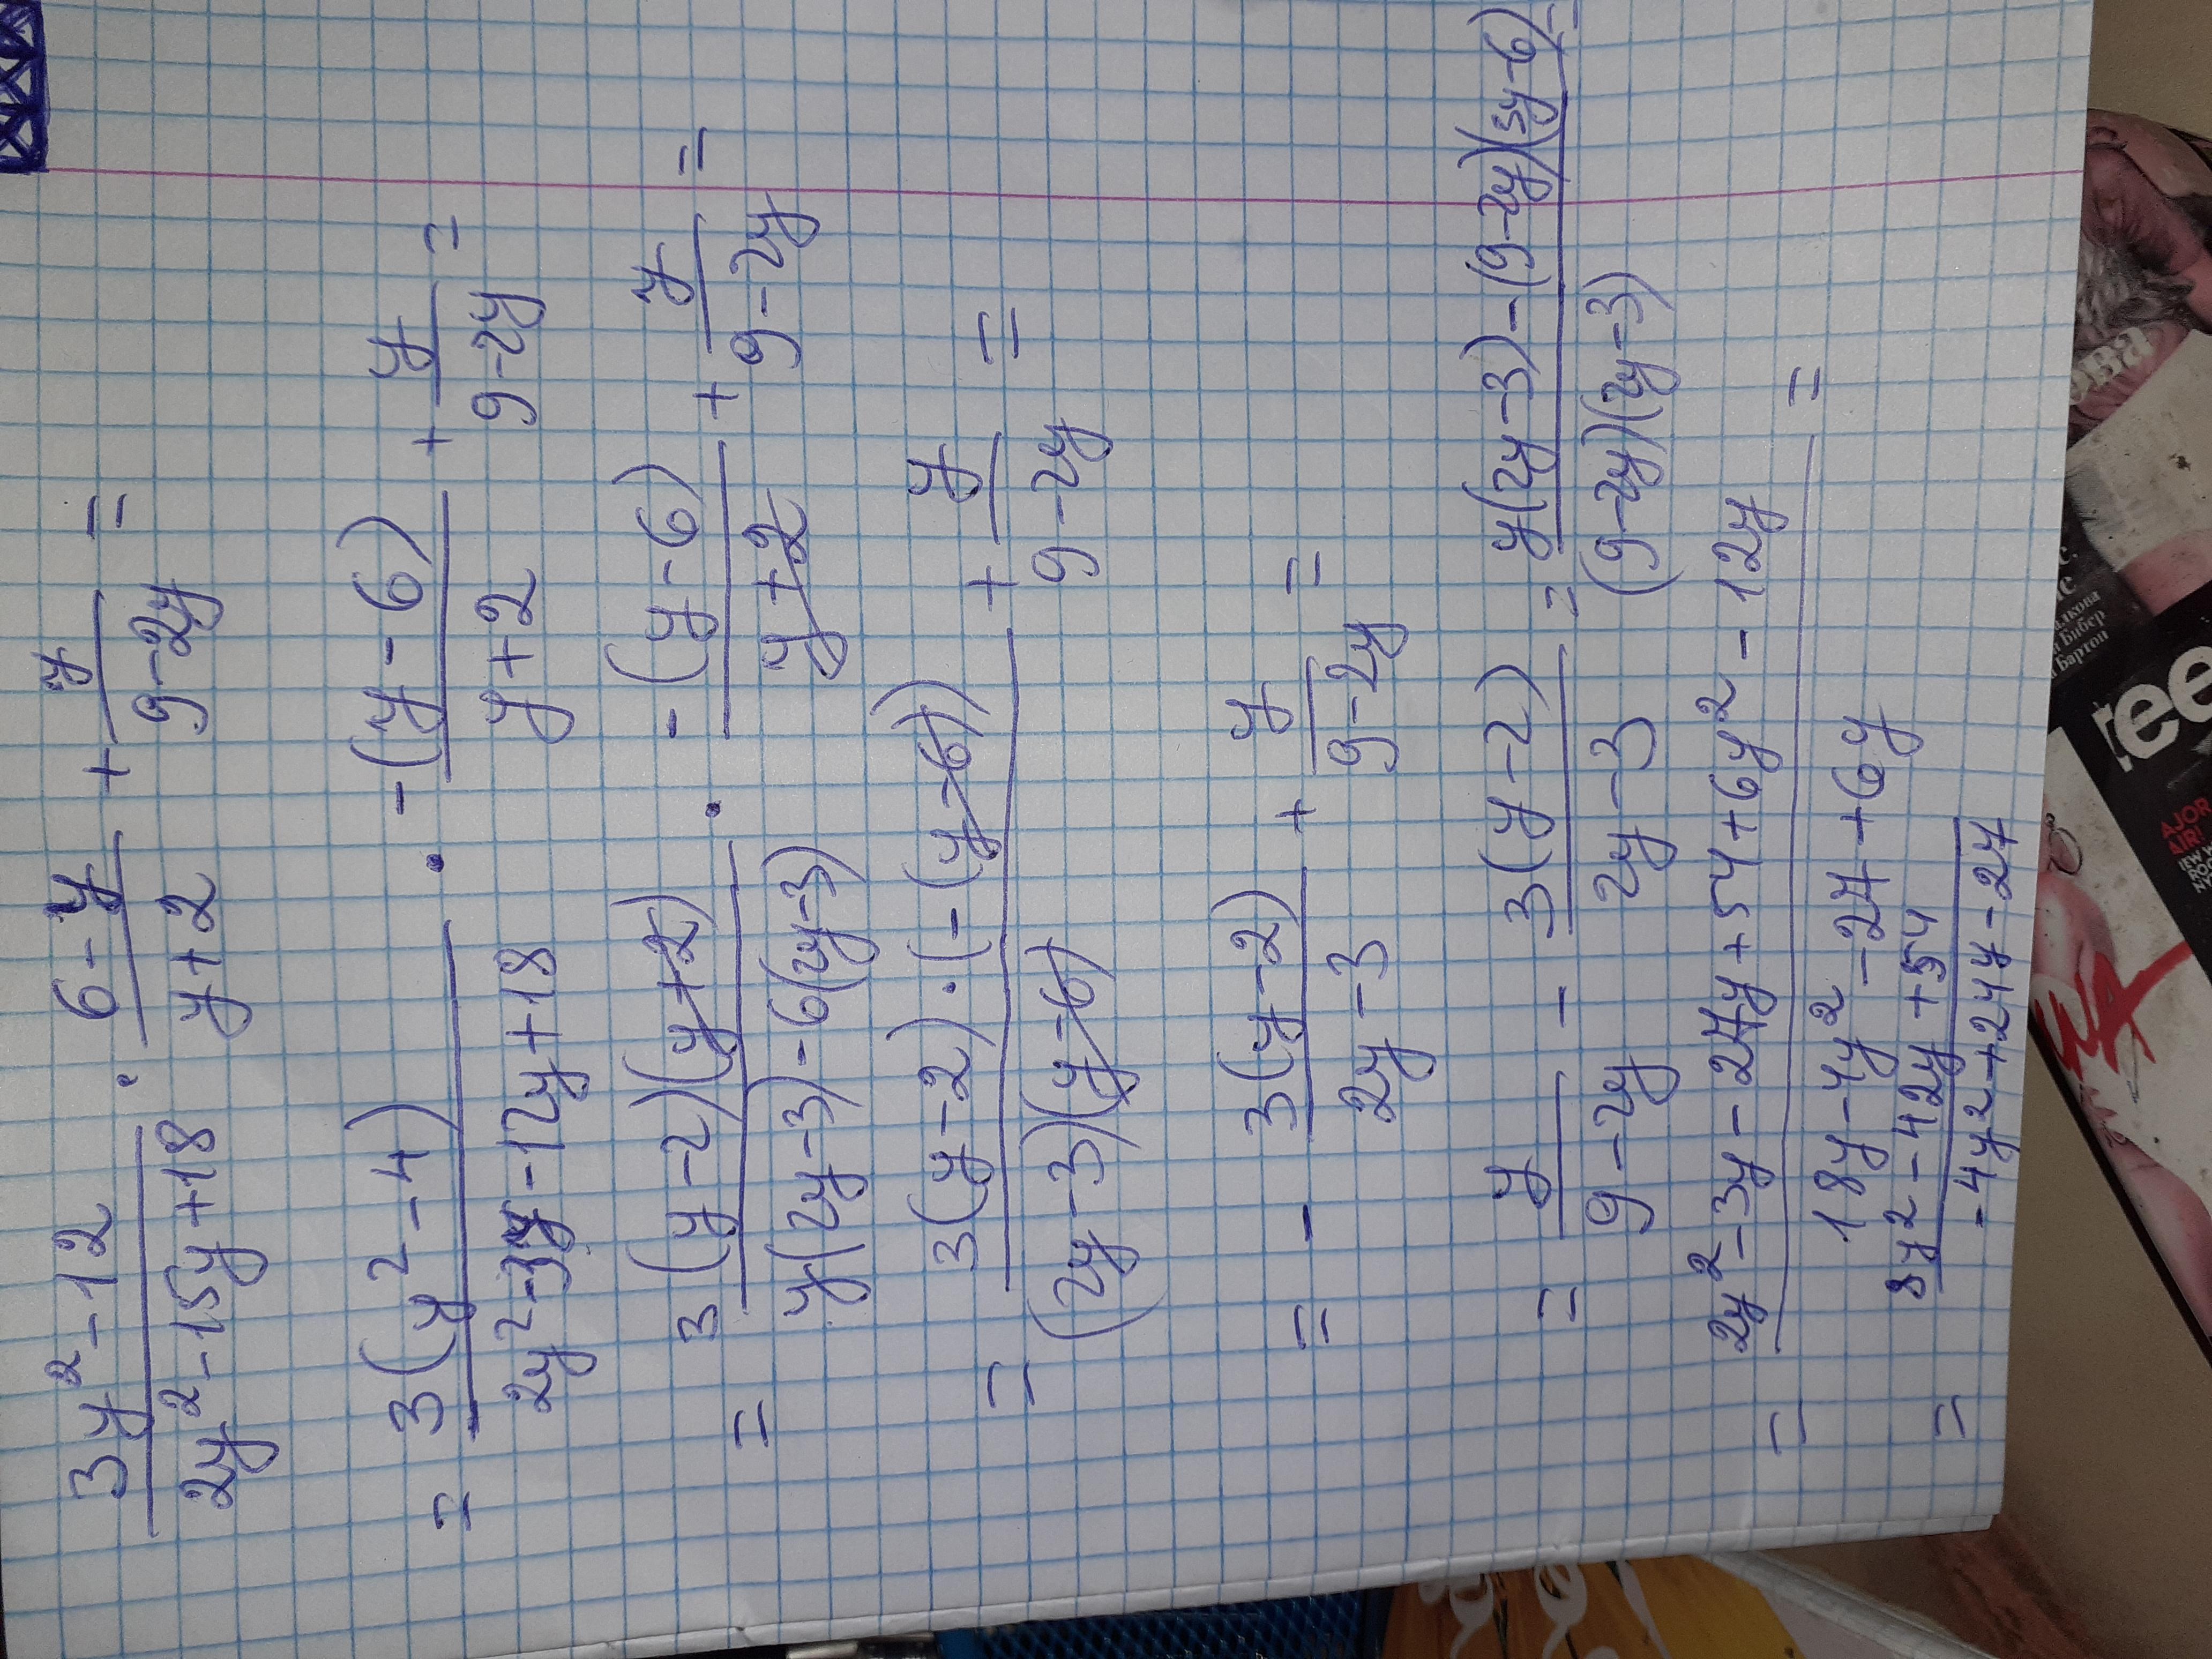 (3y² - 12)/(2y² - 15y + 18) · (6 - y)/(y + 2) + y/(9 - 2y) =
= 3(y² - 4)/(2y² - 3y - 12y + 18) · -(y - 6)/(y + 2) + y/(9 - 2y) =
= 3(y - 2)(y + 2)/(y(2y - 3) - 6(2y - 3)) · -(y - 6)/(y + 2) + y/(9 - 2y) =
= 3(y - 2) · (-(y - 6))/((2y - 3)(y - 6)) + y/(9 - 2y) =
= - 3(y - 2)/(2y - 3) + y/(9 - 2y) =
= y/(9 - 2y) - 3(y - 2)/(2y - 3) = (y(2y - 3) - (9 - 2y)(3y - 6))/((9 - 2y)(2y - 3)) =
= (2y² - 3y - 27y + 54 + 6y² - 12y)/(18y - 4y² - 27 + 6y) =
= (8y² - 42y + 54)/(-4y² + 24y - 27)
ree
AJOR
лкова
Бибер
Бартон